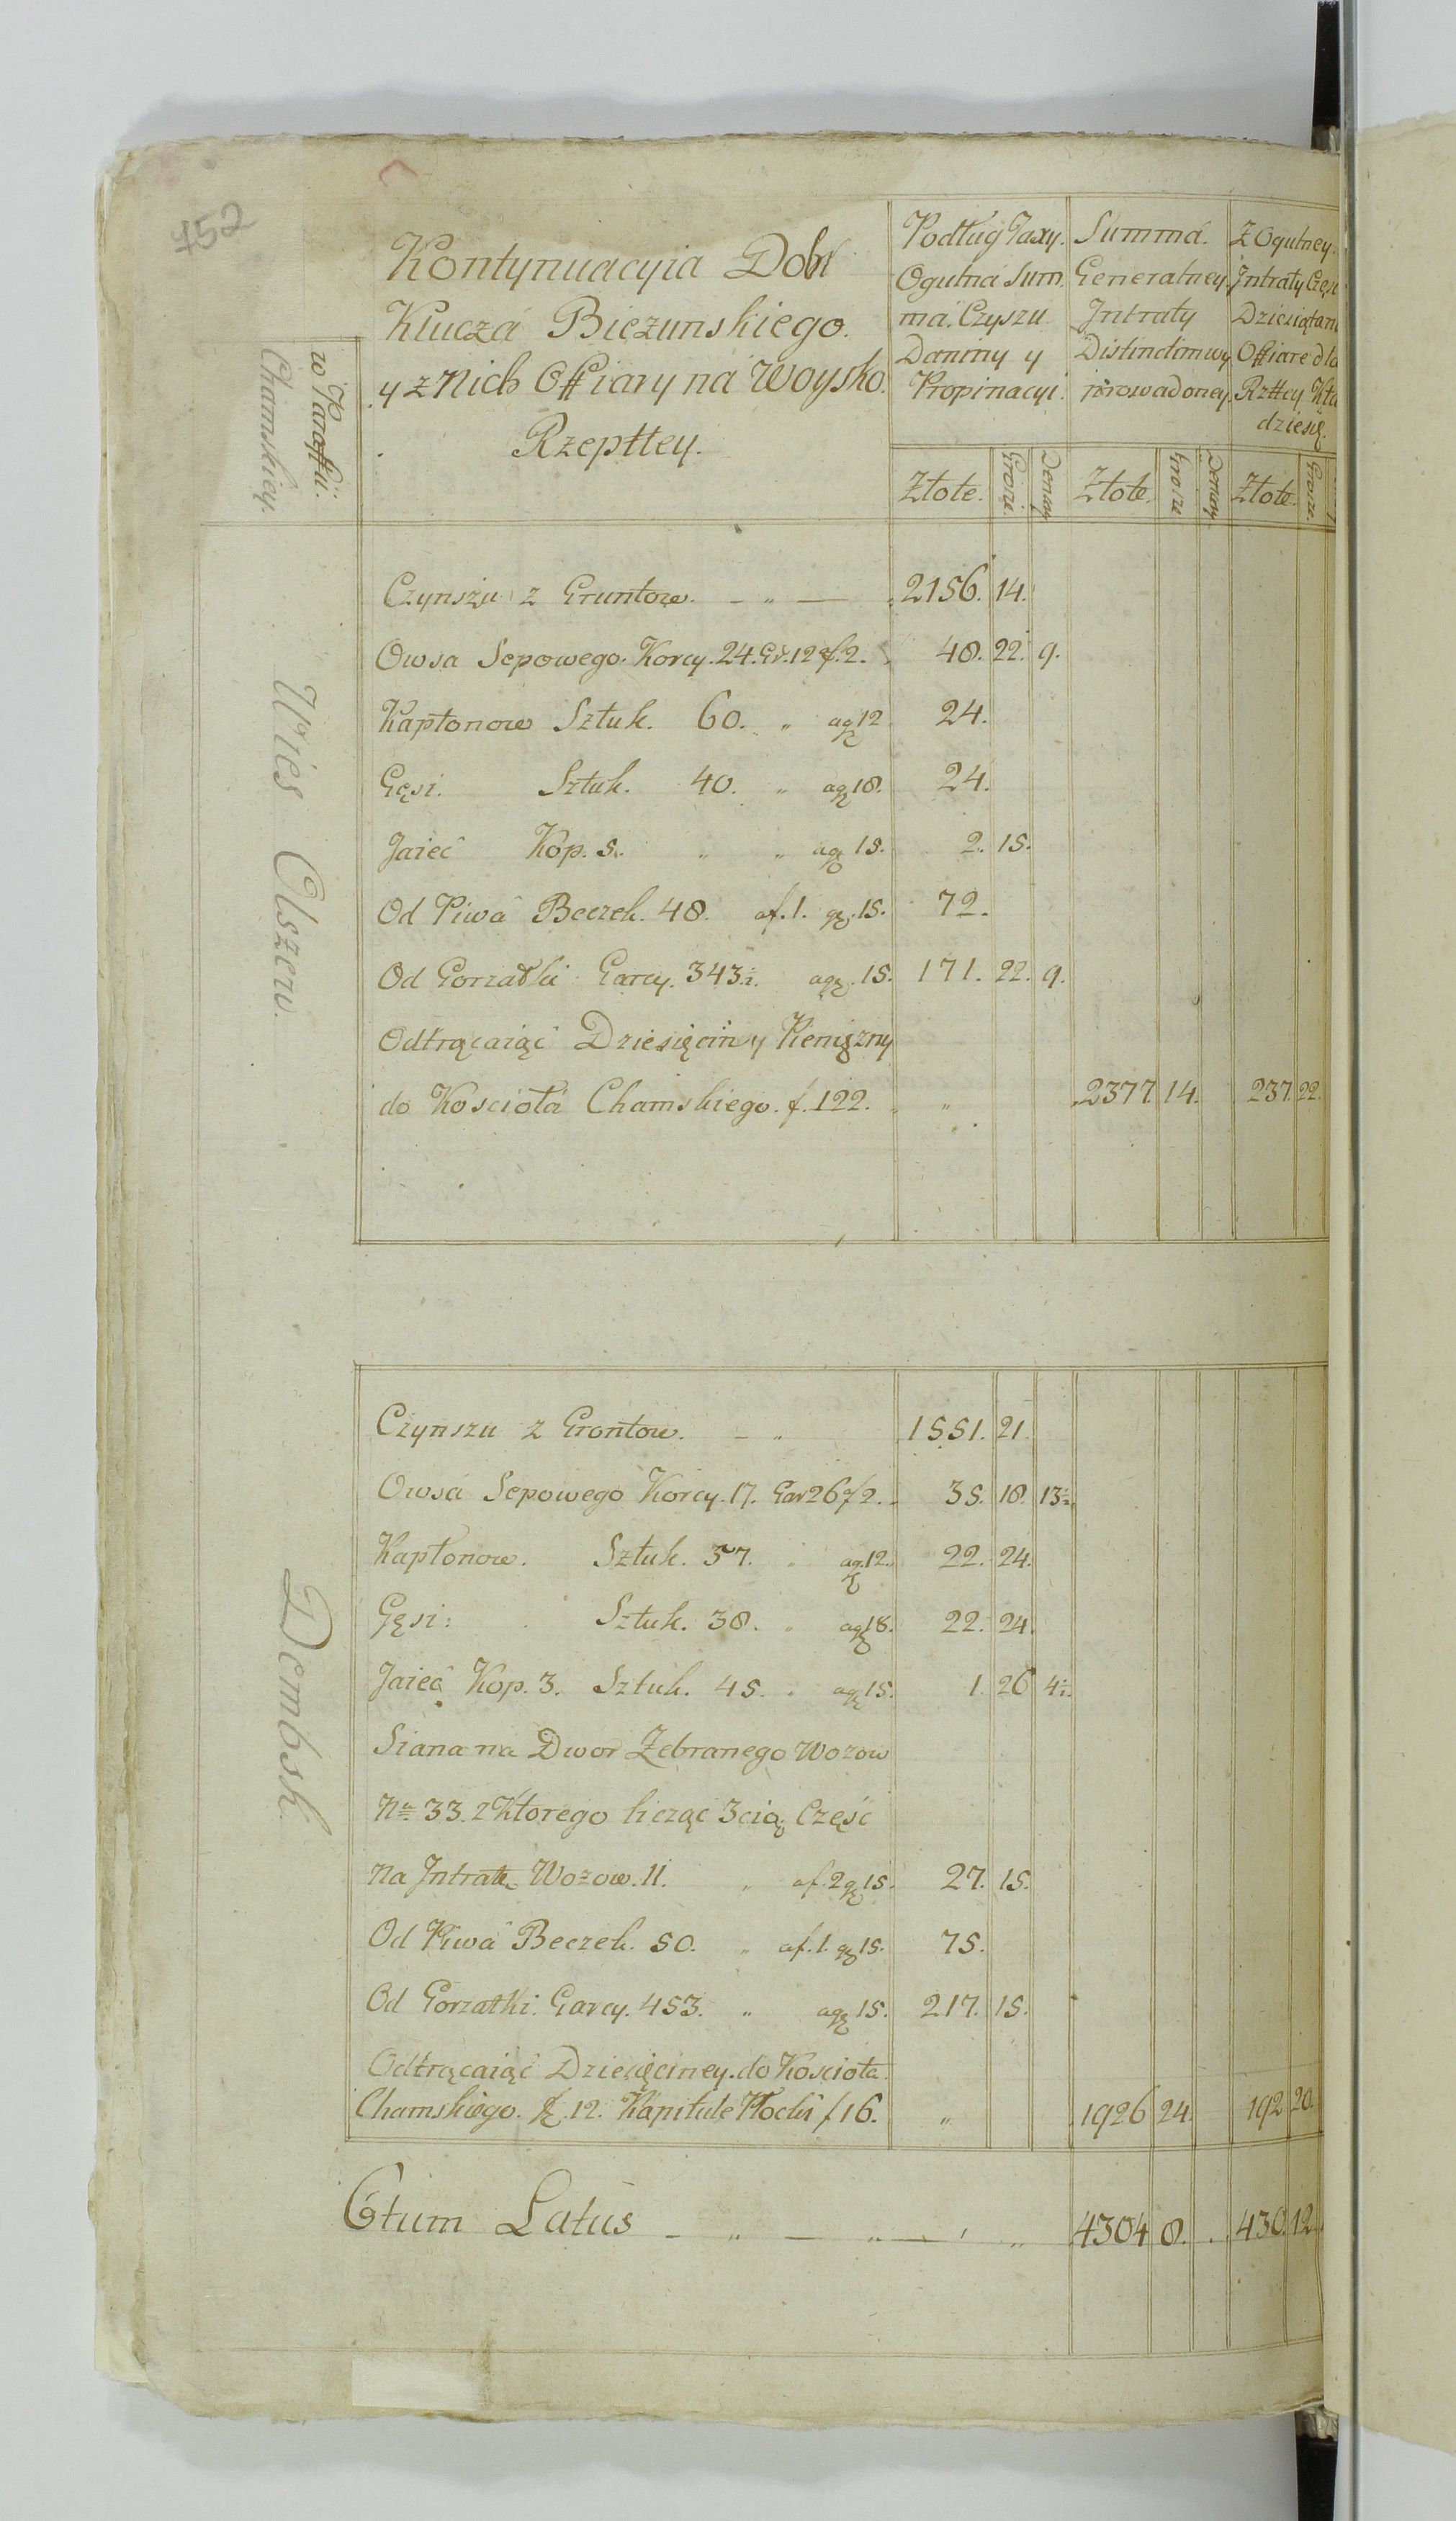 752
Kontynuacyia Dobr
Klucza Bieżunskiego.
y z Nich Offiary na Woysko.
Rzepttey.
w Paraffii.
Chamskiey.
Podług Taxy. Summa. Z Ogulney.
Ogulna Sum Generalney. Intraty Częs
ma. Czyszu Intraty Dziesiątam
Daniny y Distinctim wy Offiare dla
Propinacyi. prowadoney. Rzttey Kła
dzie się.
Złote. Grosze. Denary Złote. Grosze Denary Złote. Grosze.
Wies Olszew.
Czynszu z Gruntow. - „ — 2156. 14.
Owsa Sepowego. Korcy. 24. Gr. 12 af. 2. 48. 22. 9.
Kapłonow Sztuk. 60. „ ag 12 24.
Gęsi. Sztuk. 40. „ ag 18. 24.
Jaieć Kop. 5. „ „ ag 15. 2. 15.
Od Piwa Beczek. 48. af. 1. gr. 15. 72.
Od Gorzałki Garcy. 343½. agr. 15. 171. 22. 9.
Odtrącaiąć Dziesięciny Pieniężny
do Koscioła Chamskiego. f. 122. „ 2377 14. 237. 22.
Dembsk.
Czynszu z Grontow. - „ 1551. 21.
Owsa Sepowego Korcy. 17. Gar 26 f 2. 35. 18. 13½.
Kapłonow. Sztuk. 57. „ ag. 12. 22. 24.
Gęsi: Sztuk. 38. „ ag 18. 22. 24.
Jaieć Kop. 3. Sztuk. 45. „ ag 15. 1. 26 4½.
Siana na Dwor Zebranego Wozow
No 33. z Ktorego licząc 3cią Częsć
na Intratę Wozow. 11. „ af. 2 gr 15. 27. 15.
Od Piwa Beczek. 50. „ af. 1. gr 15. 75.
Od Gorzałki. Garcy. 453. „ agr 15. 217. 15.
Odtrącaiąć Dziesięciney. do Koscioła
Chamskiego. f. 12. Kapitule Płocki f 16. „ 1926 24. 192 20.
Ctum Latus - „ — „ — „ 4304 8. 430. 12.